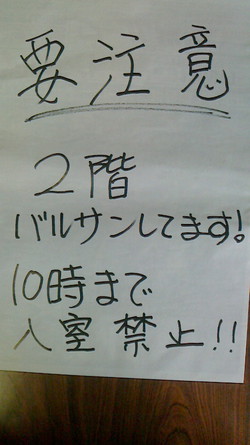 要注意
2階
バルサンしてます!
10時まで
入室禁止!!